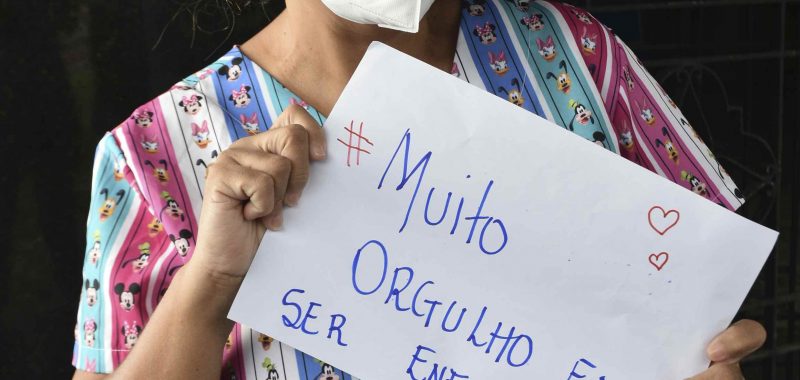 # Muito
ORGULHO E
SER ENF